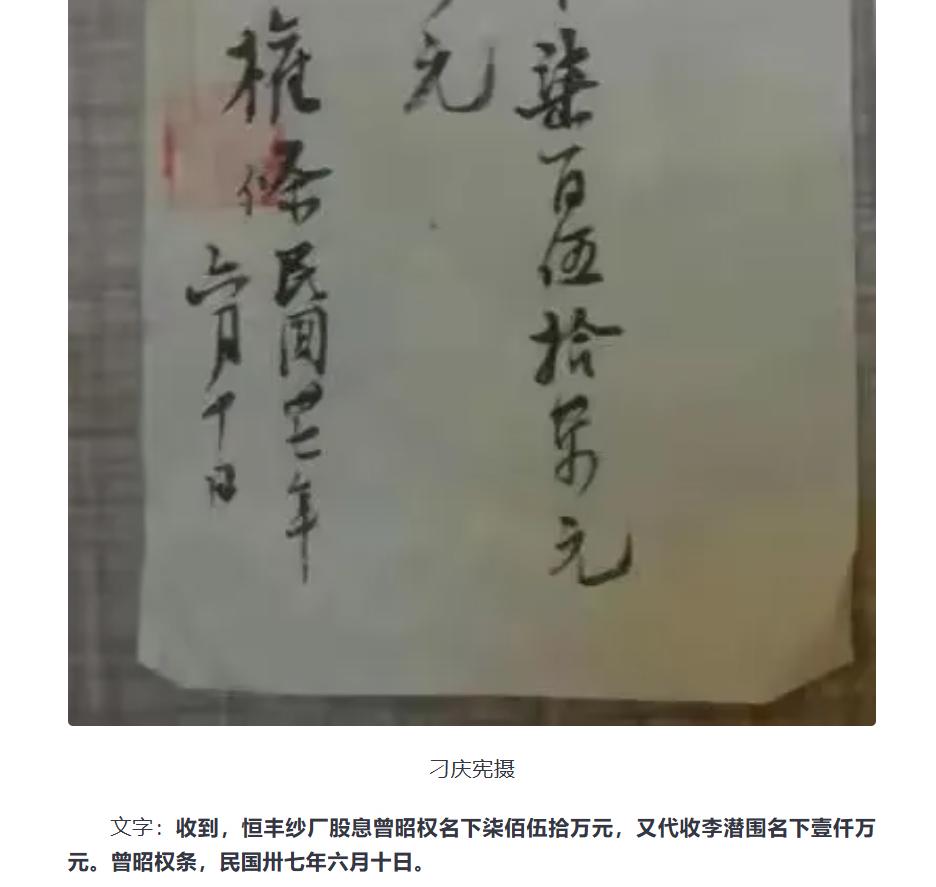 柒百伍拾萬元
元
權條民國卅七年
六月十日
刁庆宪摄
文字：收到，恒丰纱厂股息曾昭权名下柒佰伍拾万元，又代收李潜围名下壹仟万
元。曾昭权条，民国卅七年六月十日。